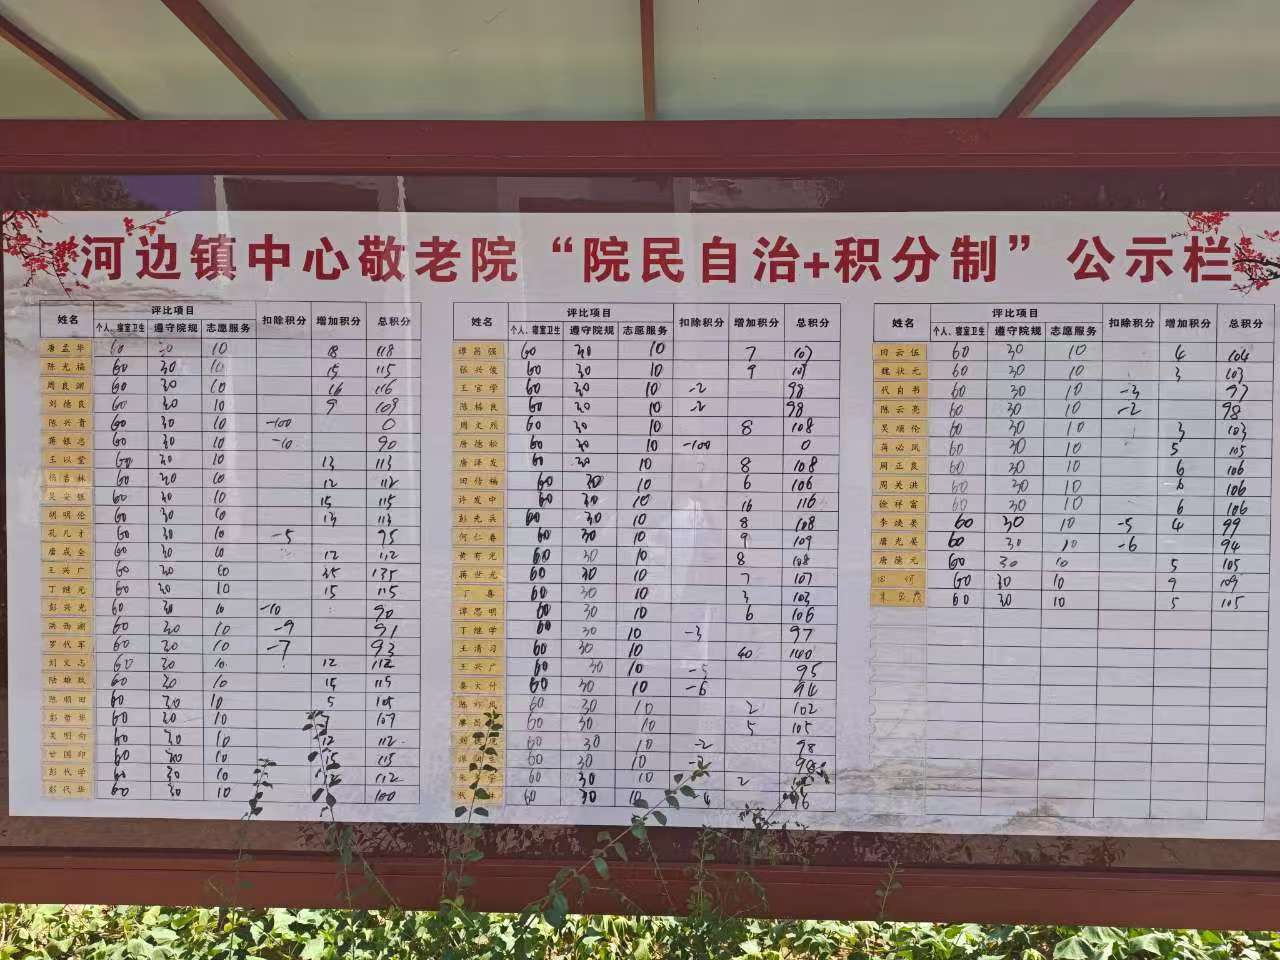 河边镇中心敬老院“院民自治+积分制”公示栏
姓名 评比项目 扣除积分 增加积分 总积分
个人、寝室卫生 遵守院规 志愿服务
唐孟华 60 30 10 18 118
陈光福 60 30 10 15 115
周良渊 60 30 10 16 116
刘德良 60 30 10 9 109
陈兴贵 60 30 10 -100 0
蒋银志 60 30 10 -10 90
王以堂 60 30 10 13 113
杨吉林 60 30 10 12 112
吴安银 60 30 10 15 115
胡明伦 60 30 10 13 113
孔凡才 60 30 10 -5 95
唐成全 60 30 10 12 112
王兴广 60 30 10 35 135
丁继元 60 30 10 15 115
彭兴光 60 30 10 -10 90
洪西湖 60 30 10 -9 91
罗代军 60 30 10 -7 93
刘义志 60 30 10 12 112
陆雄敖 60 30 10 15 115
陈顺田 60 30 10 5 105
彭哲华 60 30 10 7 107
吴明向 60 30 10 12 112
甘国印 60 30 10 15 115
彭代学 60 30 10 12 112
彭代华 60 30 10 100
姓名 评比项目 扣除积分 增加积分 总积分
个人、寝室卫生 遵守院规 志愿服务
谭昌强 60 30 10 7 107
张兴俊 60 30 10 9 109
王官学 60 30 10 -2 98
陈格良 60 30 10 -2 98
周文烈 60 30 10 8 108
唐德松 60 30 10 -100 0
唐泽发 60 30 10 8 108
田传福 60 30 10 6 106
许发中 60 30 10 16 116
彭先兵 60 30 10 8 108
何仁春 60 30 10 9 109
黄有光 60 30 10 8 108
蒋世光 60 30 10 7 107
丁喜 60 30 10 3 103
谭思明 60 30 10 6 106
丁继学 60 30 10 -3 97
王清习 60 30 10 40 140
王兴广 60 30 10 -5 95
秦大付 60 30 10 -6 94
陈 凤 60 30 10 2 102
60 30 10 5 105
60 30 10 -2 98
60 30 10 98
朱 学 60 30 10 2
代 60 30 10
姓名 评比项目 扣除积分 增加积分 总积分
个人、寝室卫生 遵守院规 志愿服务
田云伍 60 30 10 4 104
魏状元 60 30 10 3 103
代自书 60 30 10 -3 97
陈云亮 60 30 10 -2 98
吴顺伦 60 30 10 3 103
蒋必凤 60 30 10 5 105
周正良 60 30 10 6 106
周关洪 60 30 10 6 106
徐祥富 60 30 10 6 106
李焕晏 60 30 10 -5 4 99
唐光晏 60 30 10 -6 94
唐德元 60 30 10 5 105
60 30 10 9 109
60 30 10 5 105